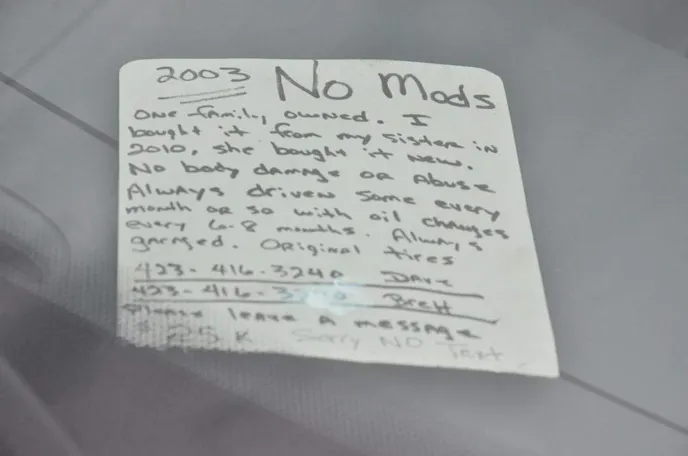 2003 No Mods
One family owned. I
bought it from my sister in
2010, she bought it new.
No body damage or Abuse
Always driven some every
month or so with oil changes
every 6-8 months. Always
garaged. Original tires
423-416-3240 Dave
423-416- Brett
Please leave a message
$25K Sorry NO Text